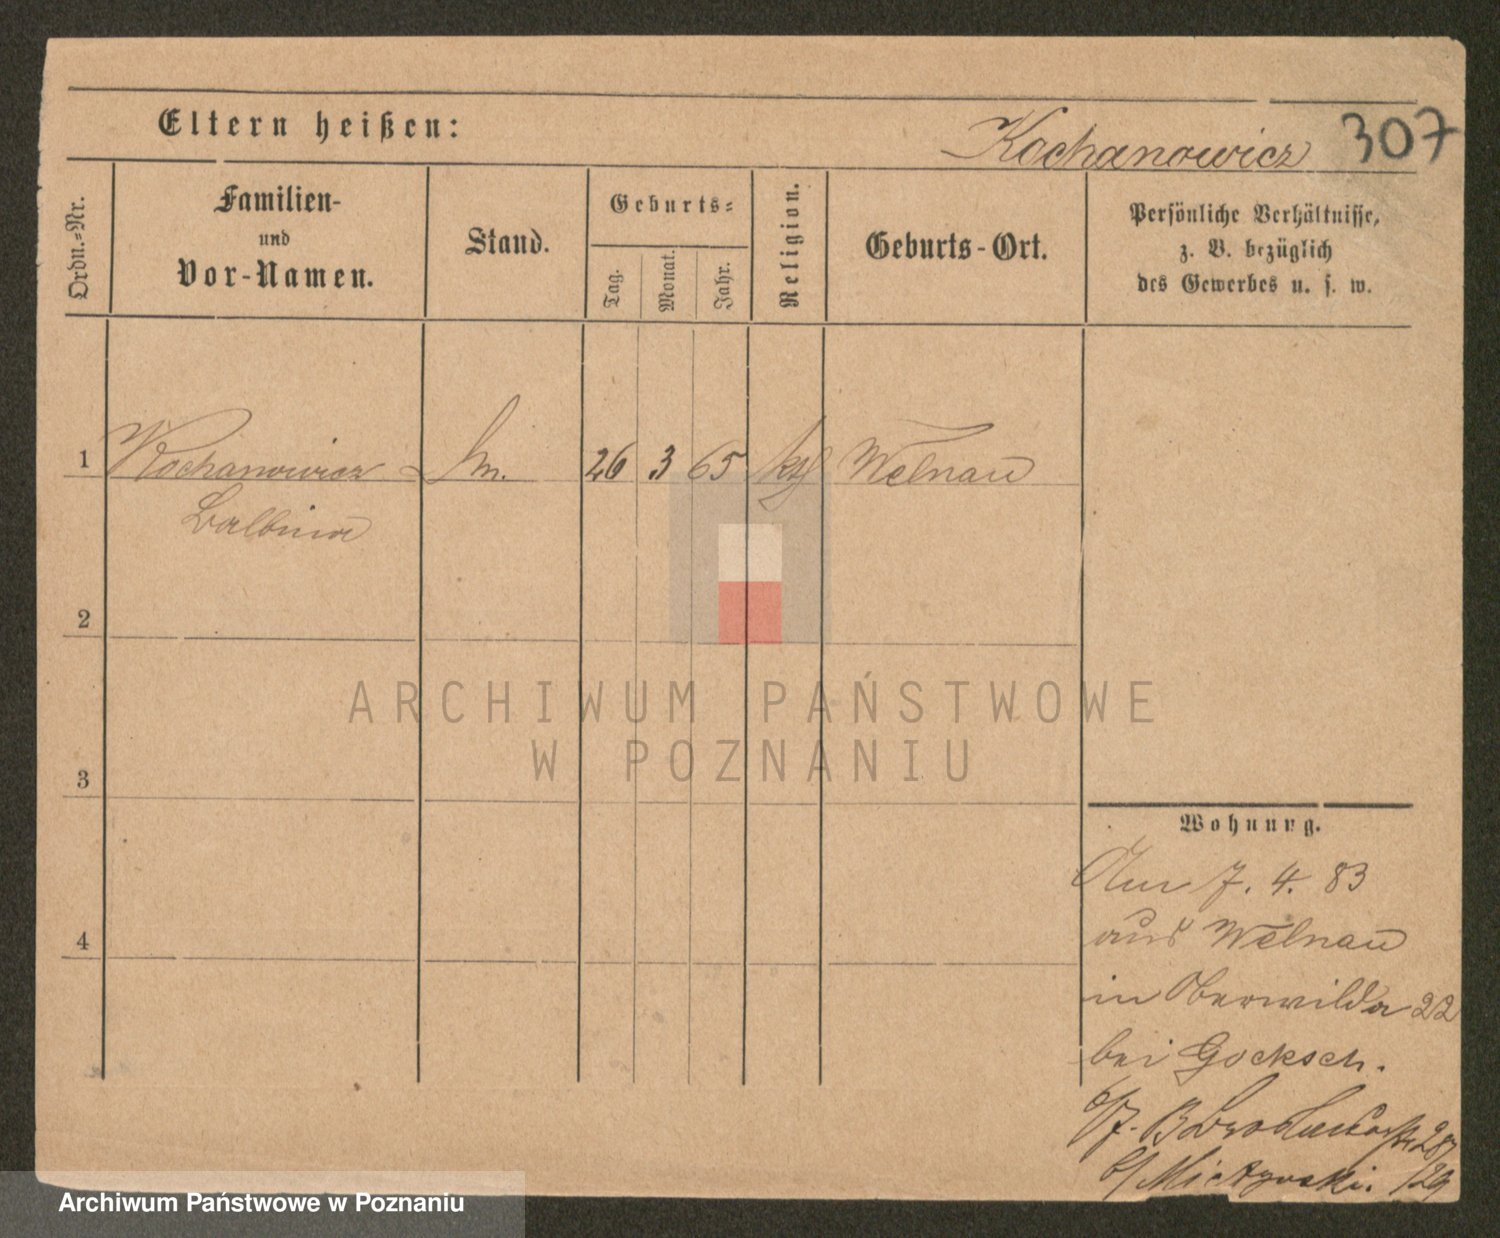 Eltern heißen:
Kochanowicz 307
Ordn.-Nr.
Familien-
und
Vor-Namen.
Stand.
Geburts-
Tag.
Monat.
Jahr.
Religion.
Geburts-Ort.
Persönliche Verhältnisse,
z. B. bezüglich
des Gewerbes u. s. w.
1 Kochanowicz 26 3 65 kth Welnau
Balbina
2
3
4
ARCHIWUM PAŃSTWOWE
W POZNANIU
Wohnung.
Am 7. 4. 83
aus Welnau
in Oberwilda 22
bei Gocksch.
6/7. 28/
b/ /29
Archiwum Państwowe w Poznaniu